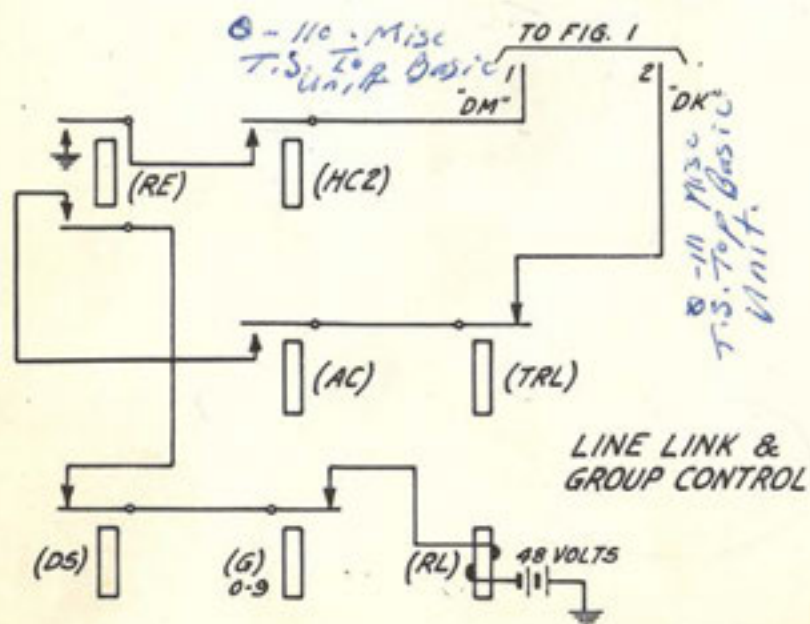 0-110-Misc
T.S. To
Unit Basic
TO FIG. 1
1
2
"DM"
"DK"
0-111 Misc
T.S. Top Basic
Unit.
(RE)
(HC2)
(AC)
(TRL)
LINE LINK &
GROUP CONTROL
(DS)
(G)
0-9
(RL)
48 VOLTS